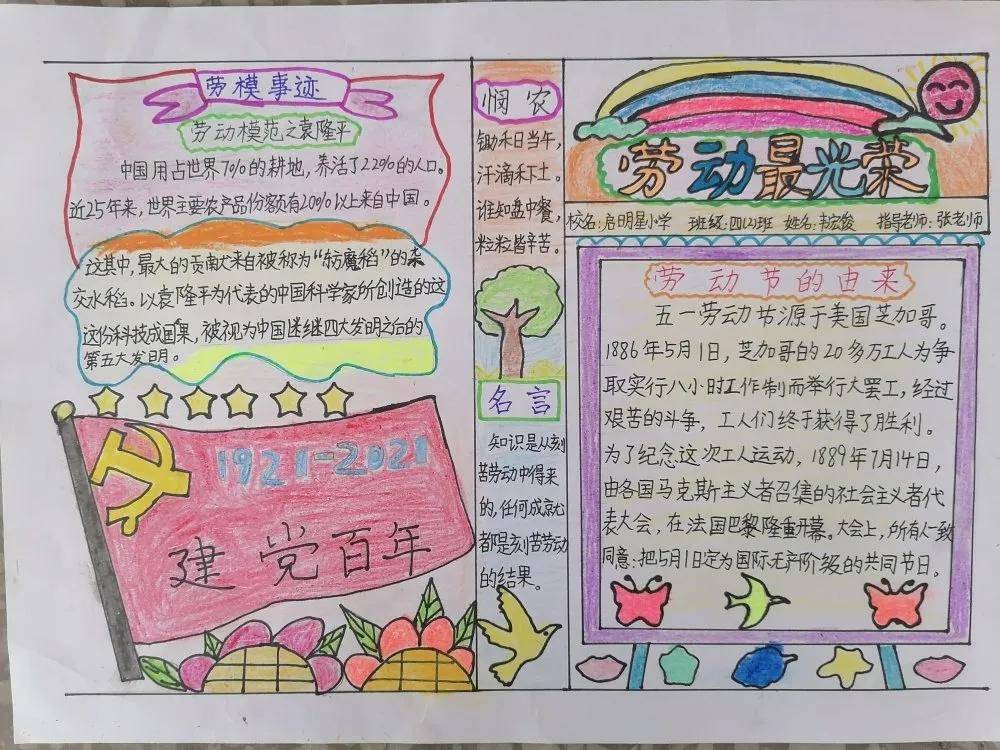 劳模事迹
劳动模范之袁隆平
中国用占世界7%的耕地，养活了22%的人口。
近25年来，世界主要农产品份额有20%以上来自中国。
这其中，最大的贡献来自被称为“东方魔稻”的杂
交水稻。以袁隆平为代表的中国科学家所创造的这
这份科技成果，被视为中国迷继四大发明之后的
第五大发明。
1921-2021
建党百年
悯农
锄禾日当午，
汗滴禾下土。
谁知盘中餐，
粒粒皆辛苦。
名言
知识是从刻
苦劳动中得来
的，任何成就
都是刻苦劳动
的结果。
劳动最光荣
校名：启明星小学 班级：四(2)班 姓名：韦宏俊 指导老师：张老师
劳动节的由来
五一劳动节源于美国芝加哥。
1886年5月1日，芝加哥的20多万工人为争
取实行八小时工作制而举行大罢工，经过
艰苦的斗争，工人们终于获得了胜利。
为了纪念这次工人运动，1889年7月14日，
由各国马克斯主义者召集的社会主义者代
表大会，在法国巴黎隆重开幕。大会上，所有人一致
同意：把5月1日定为国际无产阶级的共同节日。